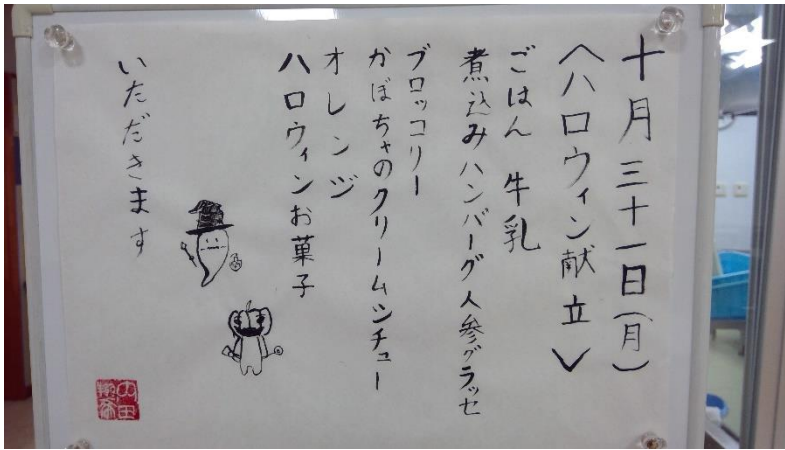 十月三十一日(月)
<ハロウィン献立>
ごはん 牛乳
煮込みハンバーグ人参グラッセ
ブロッコリー
かぼちゃのクリームシチュー
オレンジ
ハロウィンお菓子
いただきます